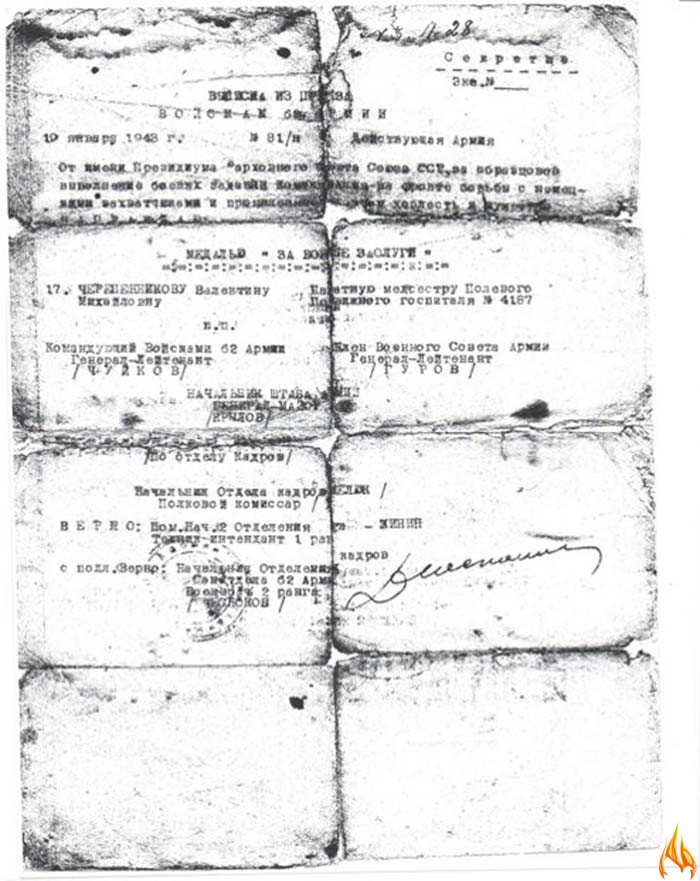 № 28
Секретно
Экс.№
ВЫПИСКА ИЗ ПРИКАЗА
ВОЙСКАМ 62 АРМИИ
19 января 1943 г. № 81/н Действующая Армия
От имени Президиума Верховного Совета Союза ССР, за образцовое
выполнение боевых заданий Командования на фронте борьбы с немец-
кими захватчиками и доблесть и
НАГРАЖДАЮ
МЕДАЛЬЮ " ЗА БОЕВЫЕ ЗАСЛУГИ "
17. ЧЕРЕПЕННИКОВУ Валентину Палатную медсестру Полевого
Михайловну Подвижного госпиталя № 4187
п.п.
Командующий Войсками 62 Армии Член Военного Совета Армии
Генерал-Лейтенант Генерал-Лейтенант
/ЧУЙКОВ/ /ГУРОВ/
НАЧАЛЬНИК ШТАБА АРМИИ
ГЕНЕРАЛ-МАЙОР
/КРЫЛОВ/
/По отделу Кадров/
Начальник Отдела кадров
Полковой комиссар /
ВЕРНО: Пом.Нач.2 Отделения
Техник-интендант 1 ранга
кадров
с подл.Верно: Начальник Отделения
Санотдела 62 Армии
Военврач 2 ранга